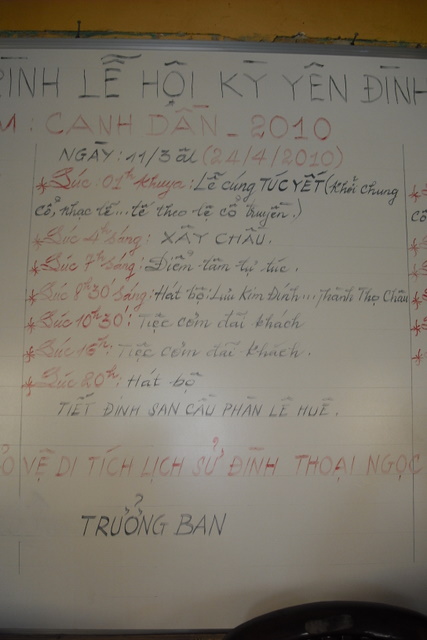 RÌNH LỄ HỘI KỲ YÊN ĐÌNH
M: CANH DẦN_2010
NGÀY: 11/3 âl (24/4/2010)
Lúc: 01h khuya: Lễ cúng TÚC YẾT (khởi chung
cổ, nhạc tế... tế theo lệ cổ truyền.)
Lúc 4h sáng: XÂY CHẦU.
Lúc 7h sáng: Điểm tâm tự túc.
Lúc 8h30 sáng: Hát bộ: Lưu Kim Đính... Thành Thọ Châu
Lúc 10h30: Tiệc cơm đãi khách
Lúc 15h: Tiệc cơm đãi khách.
Lúc 20h: Hát bộ
TIẾT ĐINH SAN CẦU PHÀN LÊ HUÊ.
ẢO VỆ DI TÍCH LỊCH SỬ ĐÌNH THOẠI NGỌC
TRƯỞNG BAN